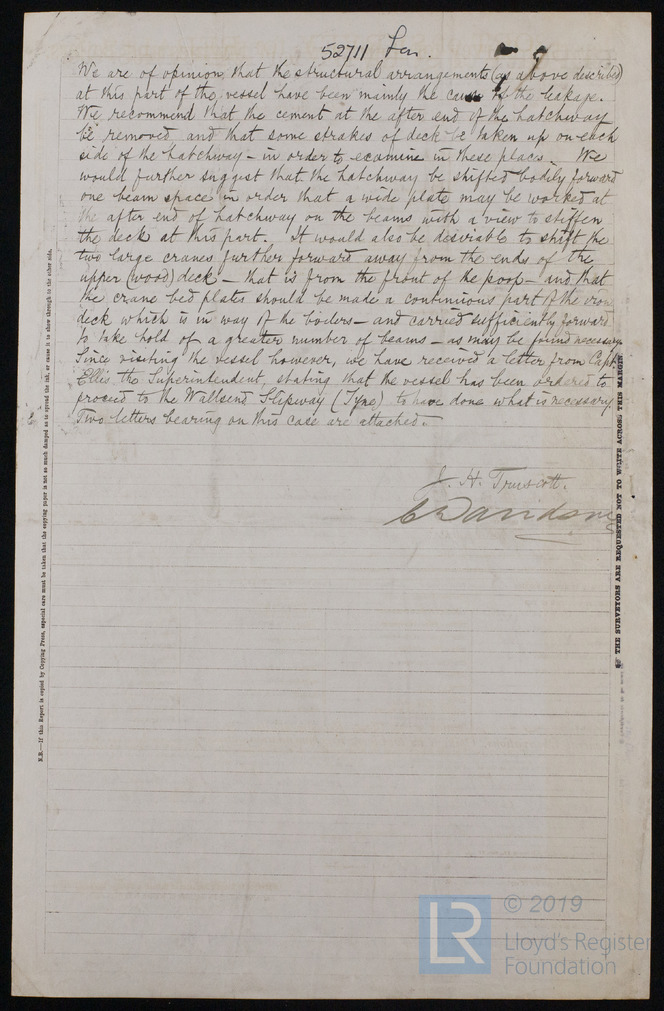 52711 Lon.
We are of opinion that the structural arrangements (as above described)
at this part of the vessel have been mainly the cause of the leakage.
We recommend that the cement at the after end of the hatchway
be removed and that some strakes of deck be taken up on each
side of the hatchway – in order to examine in these places. We
would further suggest that the hatchway be shifted bodily forward
one beam space in order that a wide plate may be worked at
the after end of hatchway on the beams with a view to stiffen
the deck at this part. It would also be desirable to shift the
two large cranes further forward away from the ends of the
upper (wood) deck – that is from the front of the poop – and that
the crane bed plates should be made a continuous part of the iron
deck which is in way of the boilers – and carried sufficiently forward
to take hold of a greater number of beams – as may be found necessary
Since visiting the vessel however, we have received a letter from Capt.
Ellis, the Superintendent, stating that the vessel has been ordered to
proceed to the Wallsend Slipway (Tyne) to have done what is necessary.
Two letters bearing on this case are attached.
J. H. Truscott.
Davidson
N.B.—If this Report is copied by Copying Press, especial care must be taken that the copying paper is not so much damped as to spread the ink, or cause it to show through to the other side.
THE SURVEYORS ARE REQUESTED NOT TO WRITE ACROSS THIS MARGIN.
LR
© 2019
Lloyd's Register
Foundation